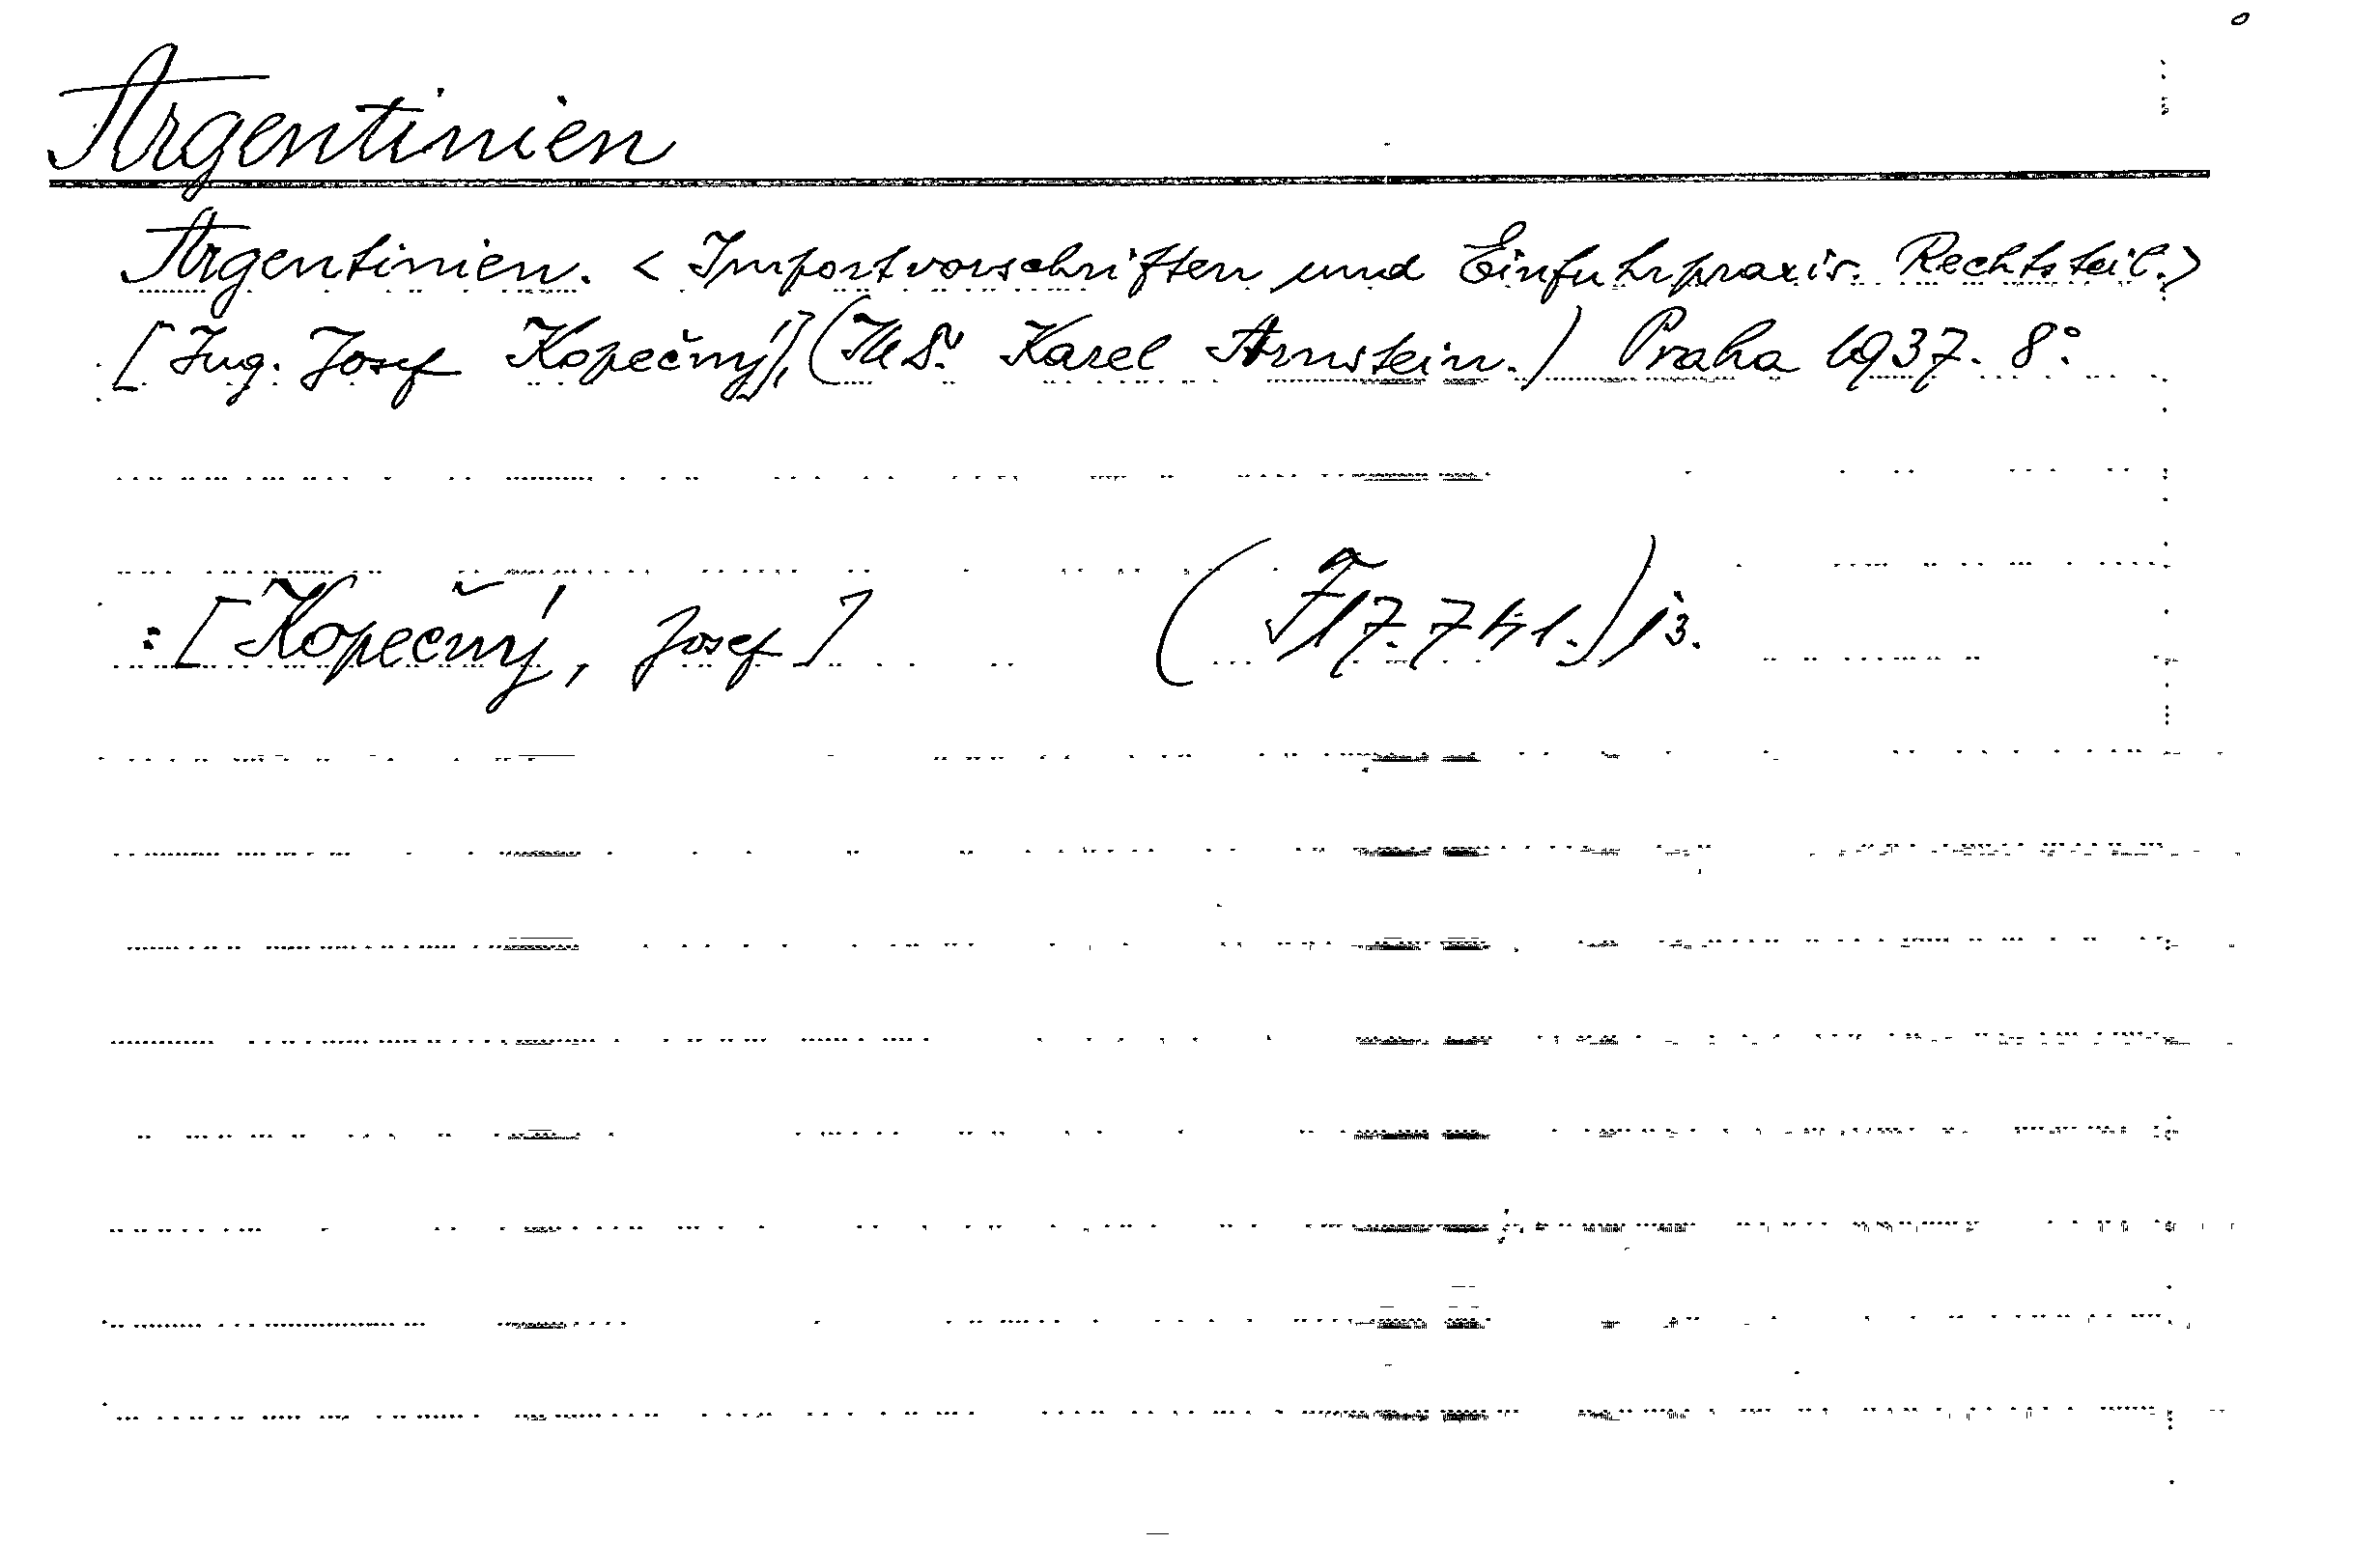 Argentinien
Argentinien. < Importvorschriften und Einfuhrpraxis. Rechtsteil.>
[Ing. Josef Kopečný], ( Karel Arnstein.) Praha 1937. 8°.
: [Kopečný, Josef] (F 17.741.)/3.